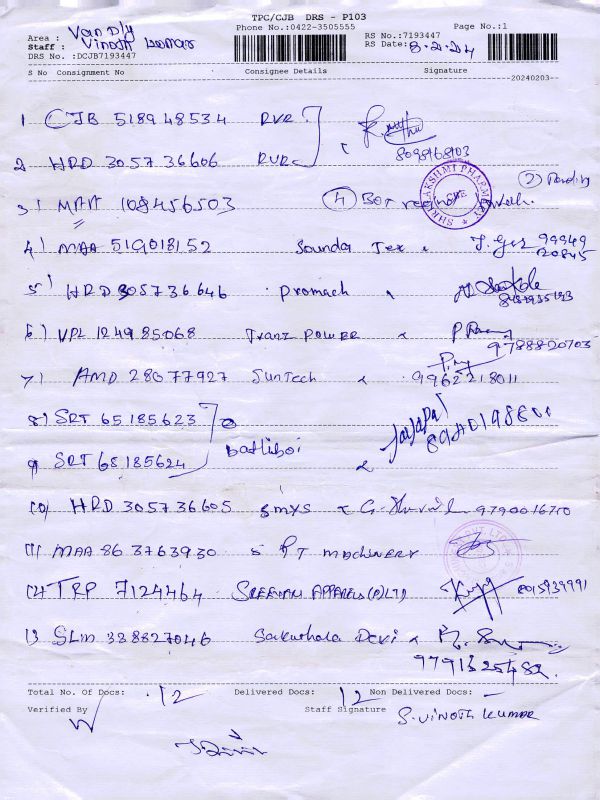 TPC/CJB DRS - P103
Area : Van Dly Phone No.:0422-3505555 Page No.:1
Staff : Vinoth kumar RS No.:7193447
DRS No. :DCJB7193447 RS Date: 8.2.24
S No Consignment No Consignee Details Signature
20240203
1 CJB 518948534 RVR
8098168103
2. HRD 305736606 RVR
3) MAA 108456503 (4) (2) Pending
SHRI LAKSHMI PHARMACY
4) MAA 519018152 Sounda Tex 99949
20845
5) HRD 305736646 Promach
6) VPL 124985068 Tranz Power
9788820703
7) AMD 28077927 SunTech 9962218011
8) SRT 65185623
Batliboi
9) SRT 65185624
10) HRD 305736605 SMYS 9790016710
11) MAA 863763930 S PT machinery
12) TRP 7124464 SREEVANI APPARELS (P) LTD 8015939991
13 SLM 338827046 Sakunthala Devi
9791325482
Total No. Of Docs: 12 Delivered Docs: 12 Non Delivered Docs: -
Verified By Staff Signature S. Vinoth Kumar